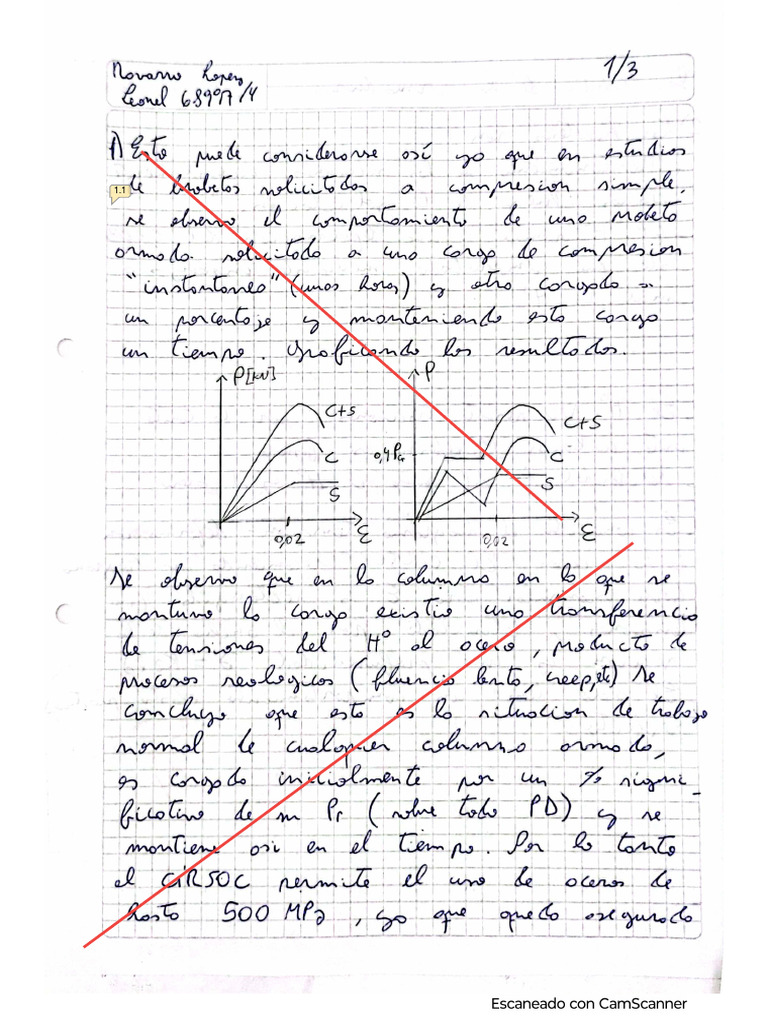 Navarro Lopez
Leonel 68997/4
1/3
1) Esto puede considerarse así ya que en estudios
1.1
de probetas solicitadas a compresion simple,
se observo el comportamiento de una probeta
armada solicitada a una carga de compresion
"instantanea" (unas horas) y otra cargada a
un porcentaje y manteniendo esta carga
un tiempo. Graficando los resultados.
P[kN]
C+S
C
S
0,02
ε
P
0,4Pcr
C+S
C
S
0,02
ε
Se observo que en la columna en la que se
mantuvo la carga existio una transferencia
de tensiones del Hº al acero, producto de
procesos reologicos (fluencia lenta, creep, etc) Se
concluyo que esta es la situacion de trabajo
normal de cualquier columna armada,
es cargada inicialmente por un % signi-
ficativo de su Pr (sobre todo PD) y se
mantiene asi en el tiempo. Por lo tanto
el CIRSOC permite el uso de aceros de
hasta 500 MPa, ya que queda asegurado
Escaneado con CamScanner